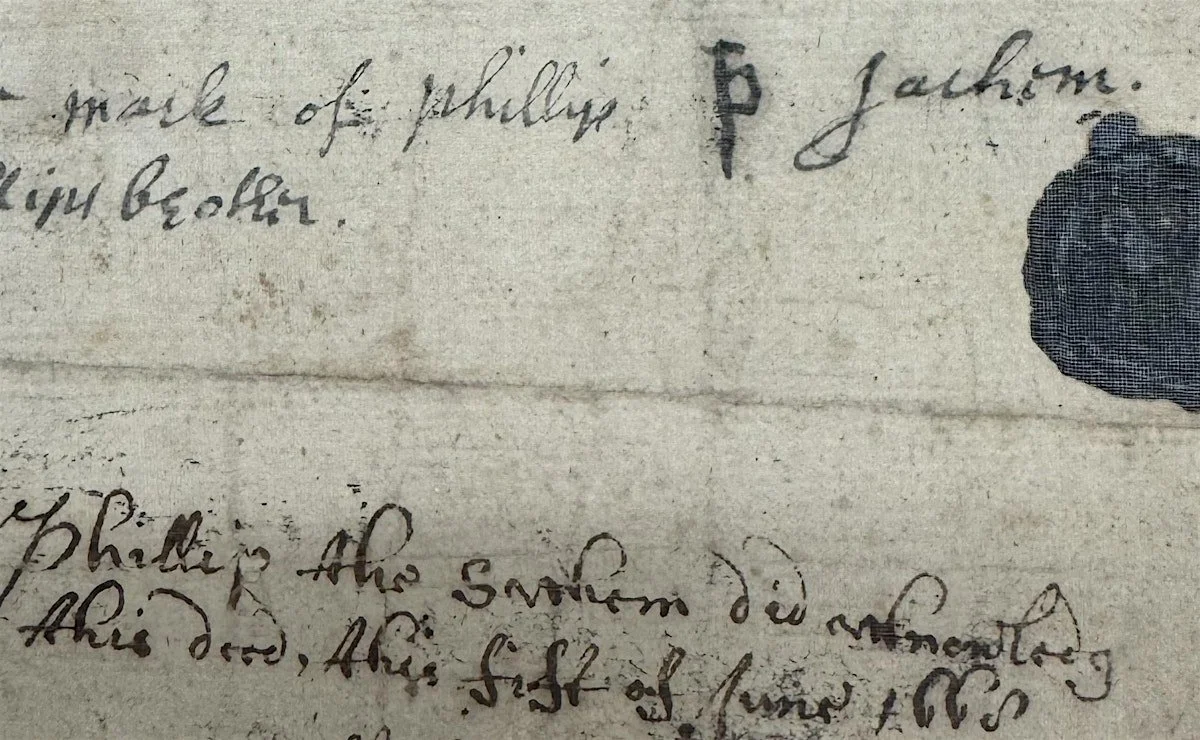 mark of phillip P Sachem.
brother.
Phillip the Sachem did acknowledg
this deed, this fift of June 1668